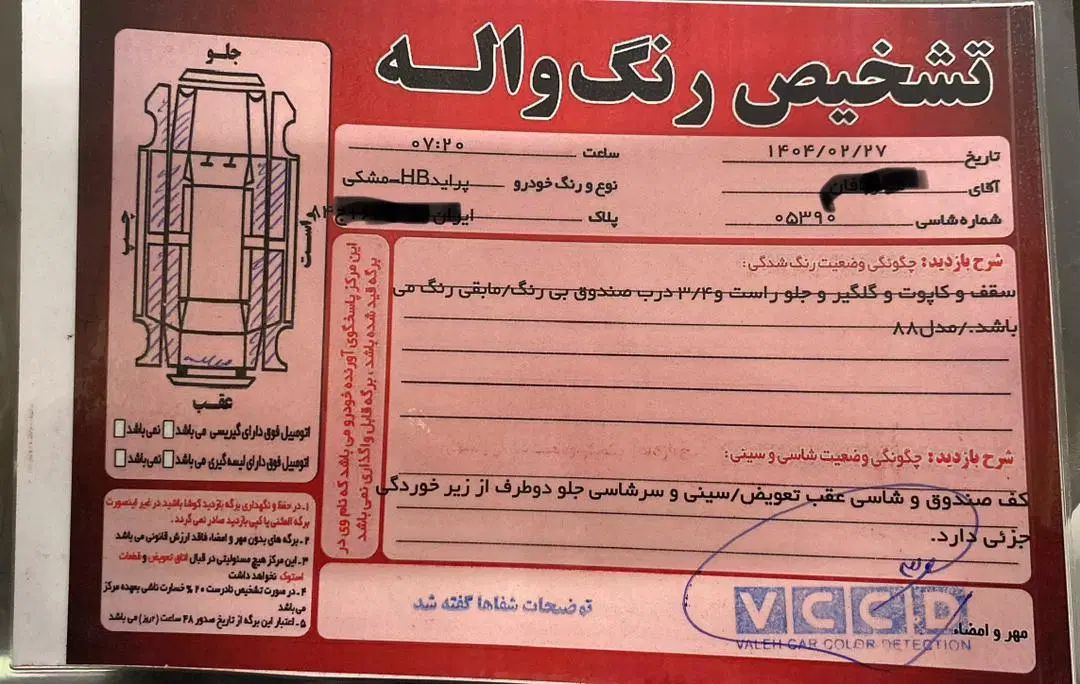 تشخیص رنگ واله
تاریخ ۱۴۰۴/۰۲/۲۷
ساعت ۰۷:۲۰
آقای
نوع و رنگ خودرو پرایدHB-مشکی
شماره شاسی ۰۵۳۹۰
پلاک ایران
شرح بازدید: چگونگی وضعیت رنگ شدگی:
سقف و کاپوت و گلگیر و جلو راست و ۳/۴ درب صندوق بی رنگ/مابقی رنگ می
باشد./مدل۸۸
شرح بازدید: چگونگی وضعیت شاسی و سینی:
کف صندوق و شاسی عقب تعویض/سینی و سرشاسی جلو دوطرف از زیر خوردگی
جزئی دارد.
مهر و امضاء
VCCD
VALEH CAR COLOR DETECTION
توضیحات شفاها گفته شد
این مرکز پاسخگوی آورنده خودرو می باشد که نام وی در
برگه قید شده باشد، برگه قابل واگذاری نمی باشد
جلو
راست
چپ
عقب
اتومبیل فوق دارای گیریسی می باشد نمی باشد
اتومبیل فوق دارای لیسه گیری می باشد نمی باشد
۱- در حفظ و نگهداری برگه بازدید کوشا باشید در غیر اینصورت
برگه المثنی یا کپی بازدید صادر نمی گردد.
۲- برگه های بدون مهر و امضاء، فاقد ارزش قانونی می باشد
۳- این مرکز هیچ مسئولیتی در قبال اتاق تعویض و قطعات
استوک نخواهد داشت
۴- در صورت تشخیص نادرست ۲۰ % خسارت ناشی بعهده مرکز
می باشد
۵- اعتبار این برگه از تاریخ صدور ۴۸ ساعت (۲روز) می باشد